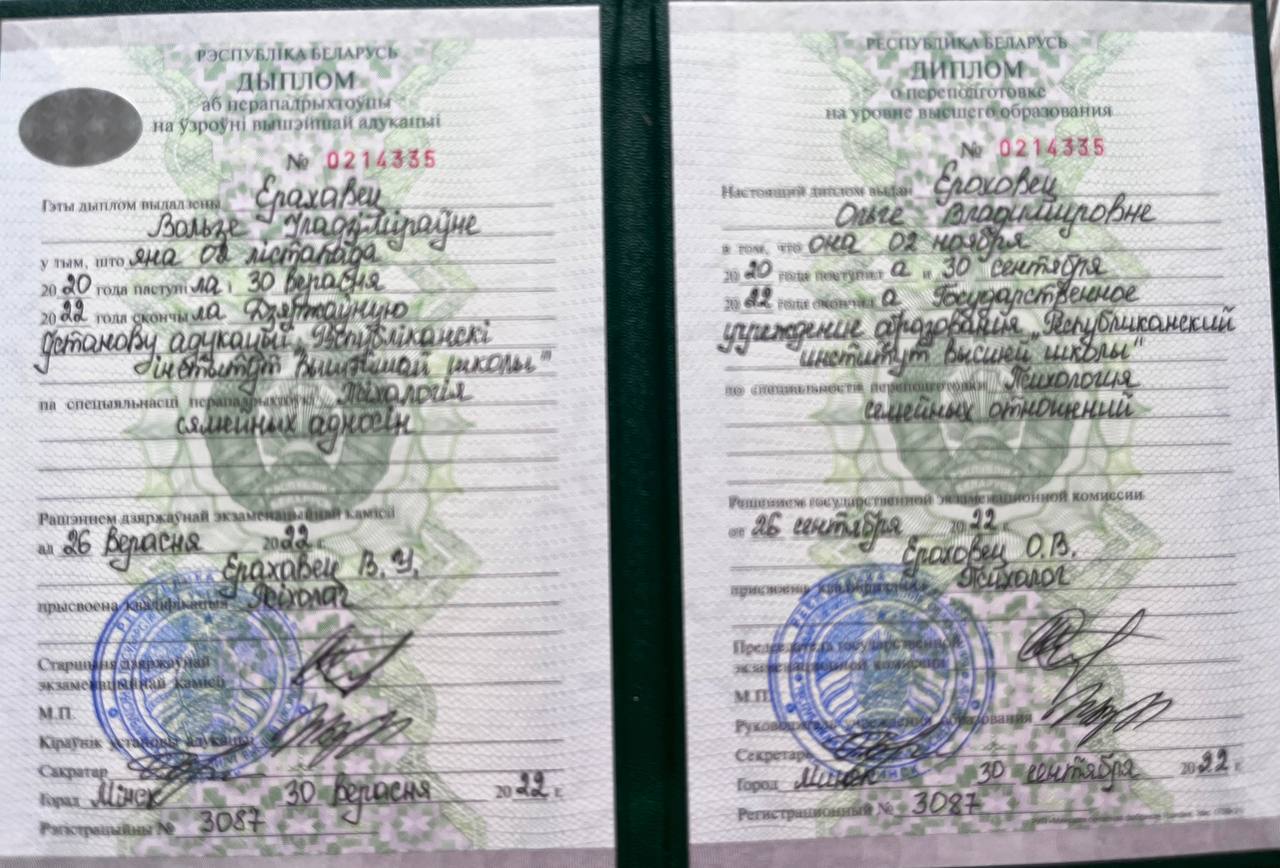 РЭСПУБЛІКА БЕЛАРУСЬ
ДЫПЛОМ
аб перападрыхтоўцы
на ўзроўні вышэйшай адукацыі
№ 0214335
Гэты дыплом выдадзены Ерахавец
Вользе Уладзіміраўне
у тым, што яна 02 лістапада
2020 года паступіла і 30 верасня
2022 года скончыла Дзяржаўную
ўстанову адукацыі „Рэспубліканскі
інстытут вышэйшай школы"
па спецыяльнасці перападрыхтоўкі Псіхалогія
сямейных адносін
Рашэннем дзяржаўнай экзаменацыйнай камісіі
ад 26 верасня 2022 г.
Ерахавец В. У.
прысвоена кваліфікацыя Псіхолаг
Старшыня дзяржаўнай
экзаменацыйнай камісіі
М.П.
Кіраўнік установы адукацыі
Сакратар
Горад Мінск 30 верасня 2022 г.
Рэгістрацыйны № 3087
РЕСПУБЛИКА БЕЛАРУСЬ
ДИПЛОМ
о переподготовке
на уровне высшего образования
№ 0214335
Настоящий диплом выдан Ероховец
Ольге Владимировне
в том, что она 02 ноября
2020 года поступила и 30 сентября
2022 года окончила Государственное
учреждение образования „Республиканский
институт высшей школы"
по специальности переподготовки Психология
семейных отношений
Решением государственной экзаменационной комиссии
от 26 сентября 2022 г.
Ероховец О.В.
присвоена квалификация Психолог
Председатель государственной
экзаменационной комиссии
М.П.
Руководитель учреждения образования
Секретарь
Город Минск 30 сентября 2022 г.
Регистрационный № 3087